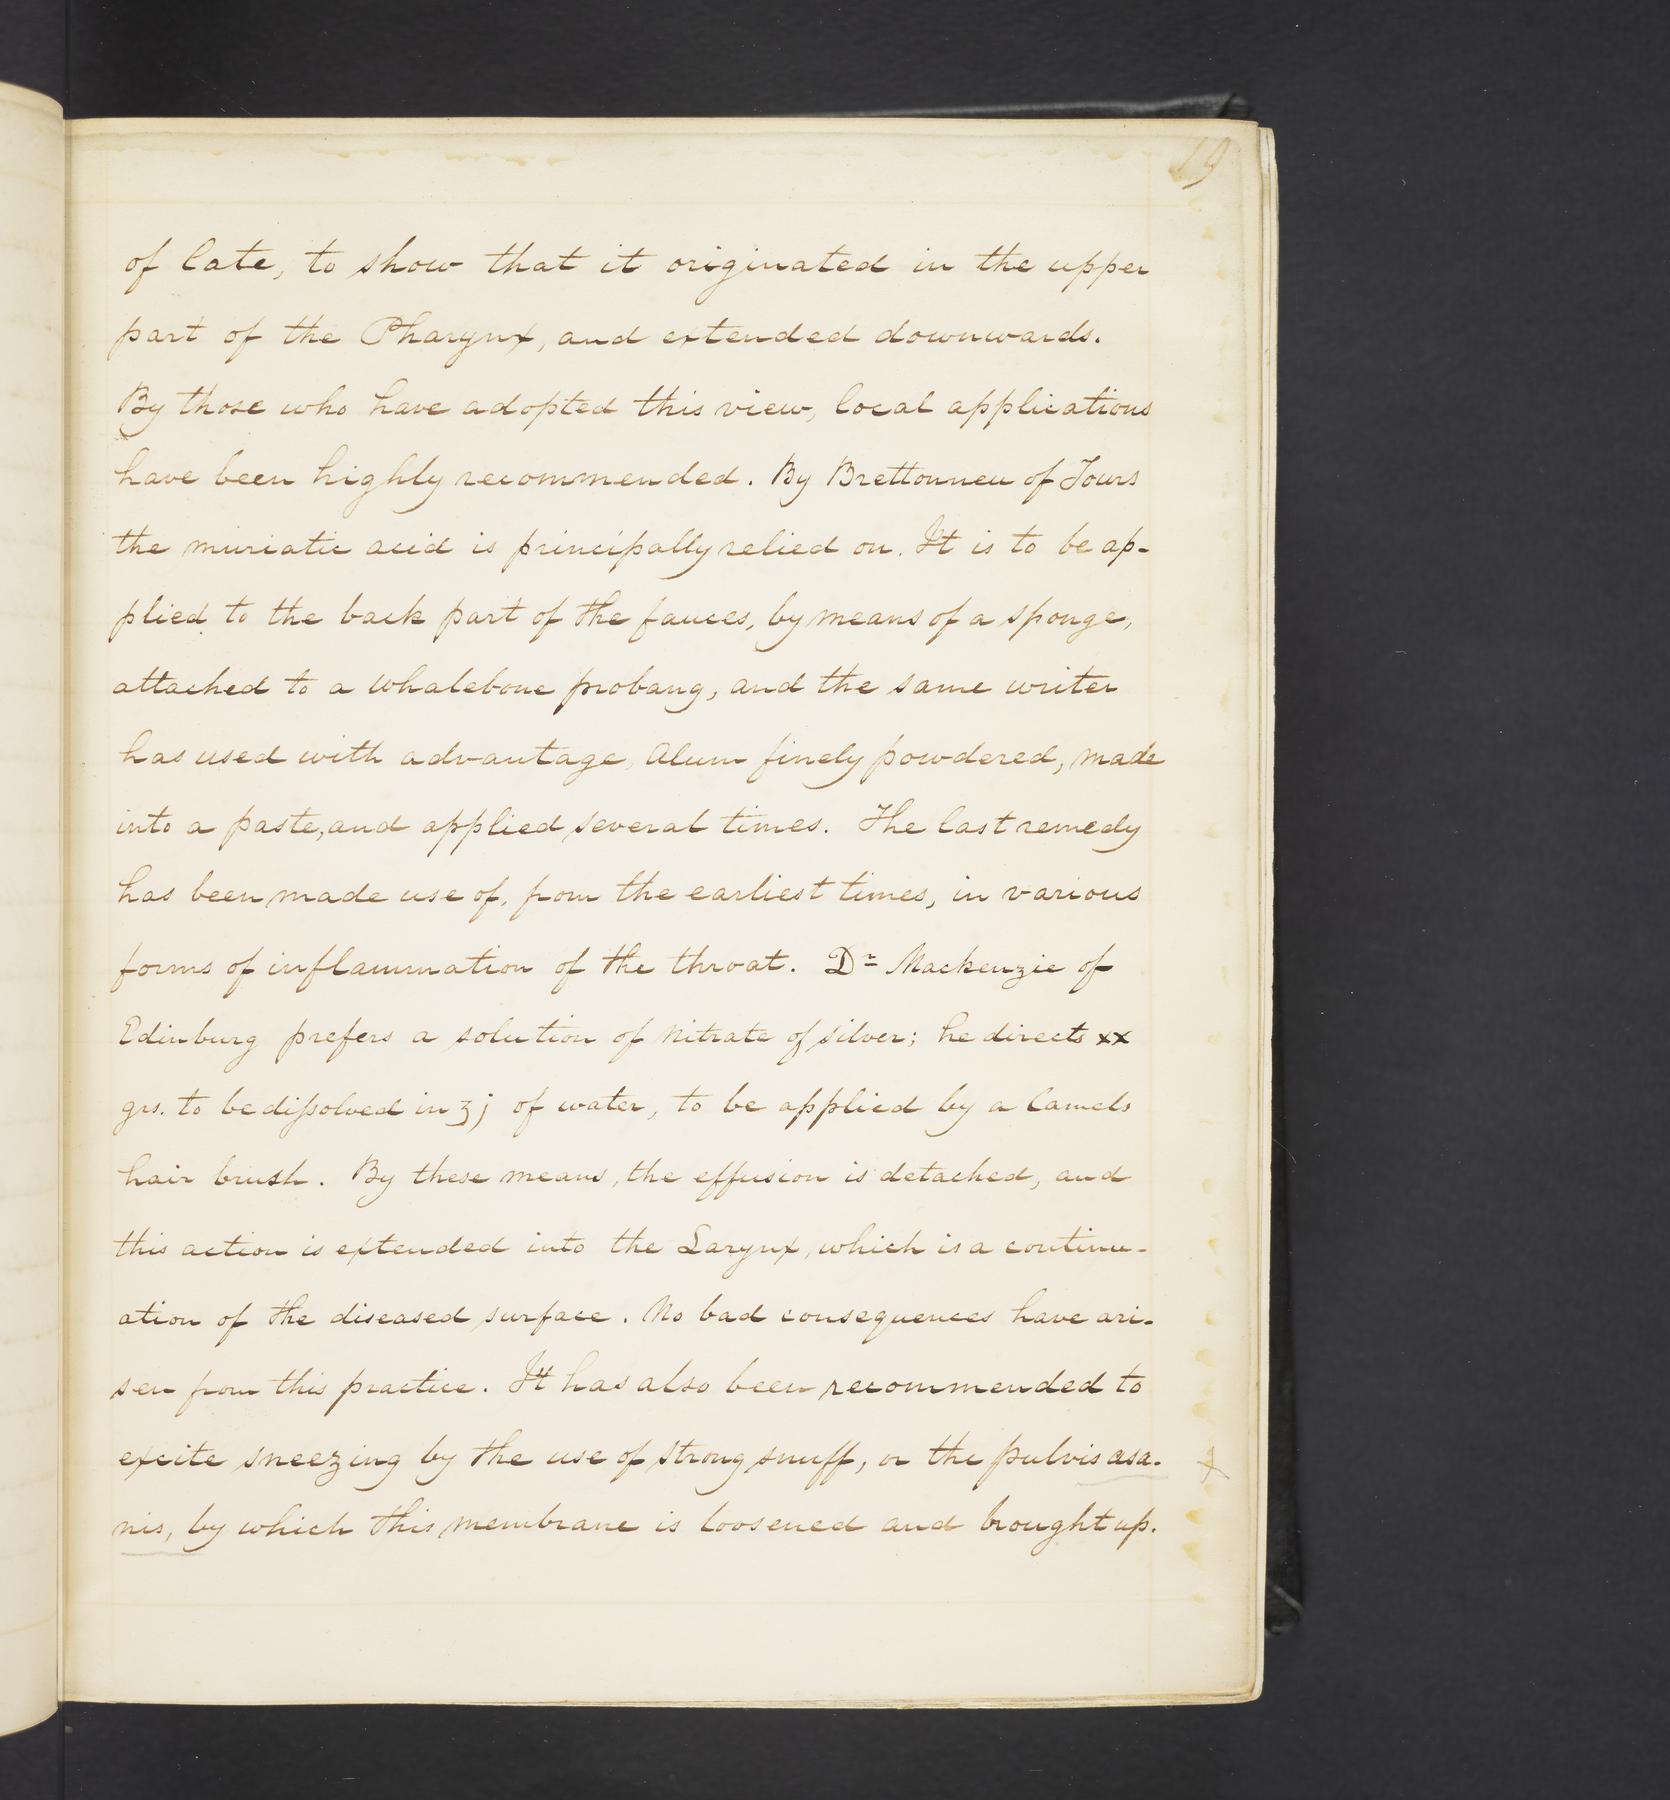 19
of late, to show that it originated in the upper
part of the Pharynx, and extended downwards.
By those who have adopted this view, local applications
have been highly recommended. By Brettonneu of Tours
the muriatic acid is principally relied on. It is to be ap-
plied to the back part of the fauces, by means of a sponge,
attached to a whalebone probang, and the same writer
has used with advantage, Alum finely powdered, made
into a paste, and applied several times. The last remedy
has been made use of, from the earliest times, in various
forms of inflammation of the throat. Dr Mackenzie of
Edinburg prefers a solution of Nitrate of silver; he directs xx
grs. to be dissolved in ʒj of water, to be applied by a Camels
hair brush. By these means, the effusion is detached, and
this action is extended into the Larynx, which is a continu-
ation of the diseased surface. No bad consequences have ari-
sen from this practice. It has also been recommended to
excite sneezing by the use of strong snuff, or the pulvis asa- x
nis, by which this membrane is loosened and brought up.